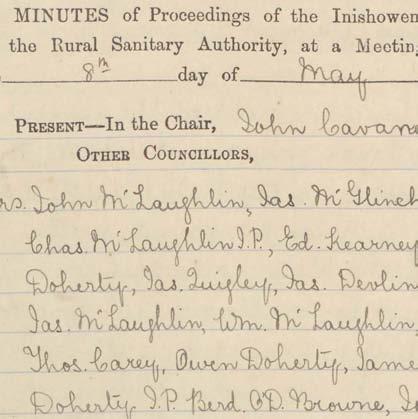 MINUTES of Proceedings of the Inishowen
the Rural Sanitary Authority, at a Meetin
8th day of May
PRESENT—In the Chair, John Cavana
OTHER COUNCILLORS,
rs. John McLaughlin, Jas. McGlinch
Chas. McLaughlin J.P., Ed. Kearney
Doherty, Jas. Quigley, Jas. Devlin
Jas. McLaughlin, Wm. McLaughlin,
Thos. Carey, Owen Doherty, Jame
Doherty J.P. Berd. O'D. Browne, Ja